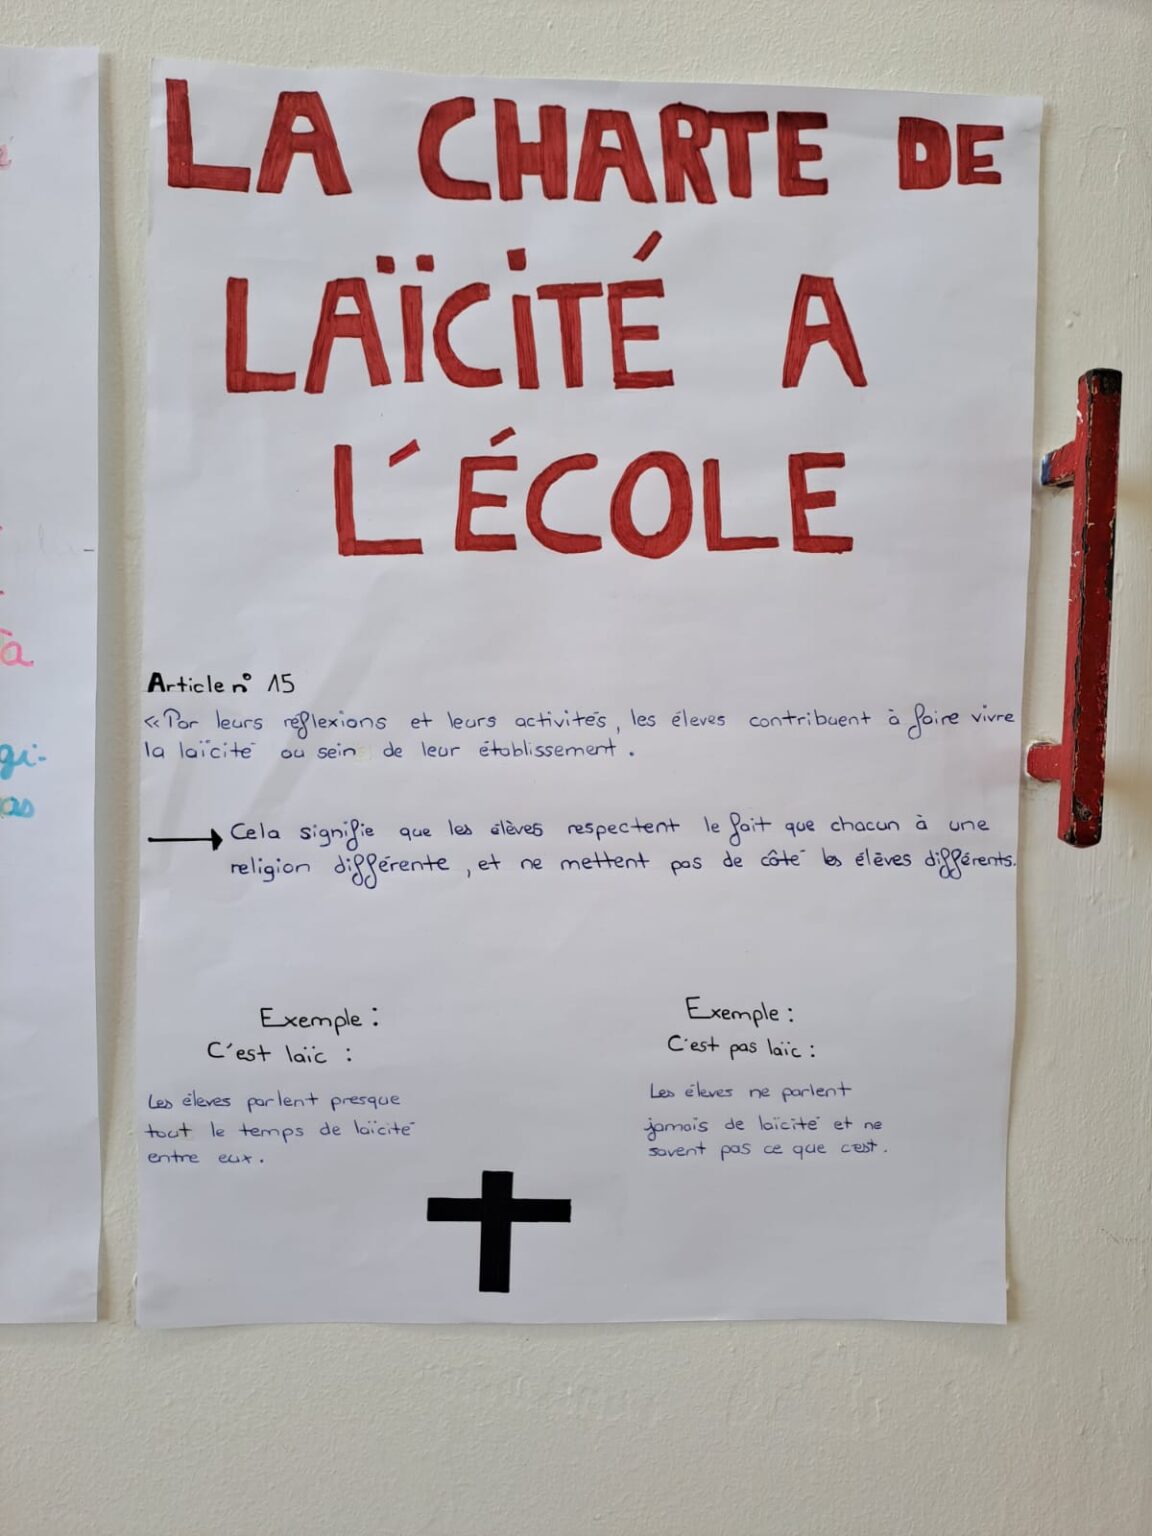 LA CHARTE DE
LAÏCITÉ A
L'ÉCOLE
Article n° 15
«Par leurs réflexions et leurs activités, les éleves contribuent à faire vivre
la laïcité au sein de leur établissement.
Cela signifie que les élèves respectent le fait que chacun à une
religion différente, et ne mettent pas de côté les élèves différents.
Exemple :
C'est laïc :
Les éleves parlent presque
tout le temps de laïcité
entre eux.
Exemple :
C'est pas laïc :
Les éleves ne parlent
jamais de laïcité et ne
savent pas ce que c'est.
à
gi-
as